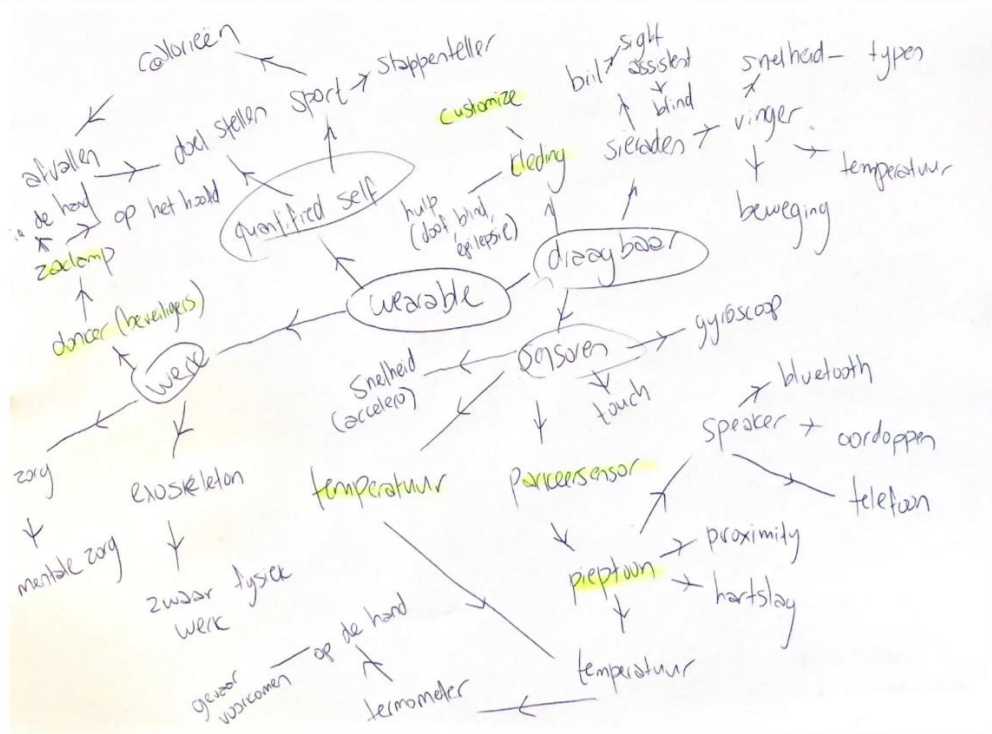 calorieën
sport
stappenteller
afvallen
doel stellen
quantified self
in de hand
op het hoofd
zaclamp
doncer (beveiligers)
werk
zorg
mentale zorg
exoskeleton
zwaar fysiek
werk
wearable
customize
kleding
hulp
(doof, blind,
epilepsie)
draagbaar
sieraden
bril
sight
assistent
blind
vinger
snelheid - typen
temperatuur
beweging
sensoren
gyroscoop
touch
snelheid
(accelero)
temperatuur
parkeersensor
pieptoon
speaker
bluetooth
oordoppen
telefoon
proximity
hartslag
temperatuur
termometer
op de hand
gevaar
voorkomen